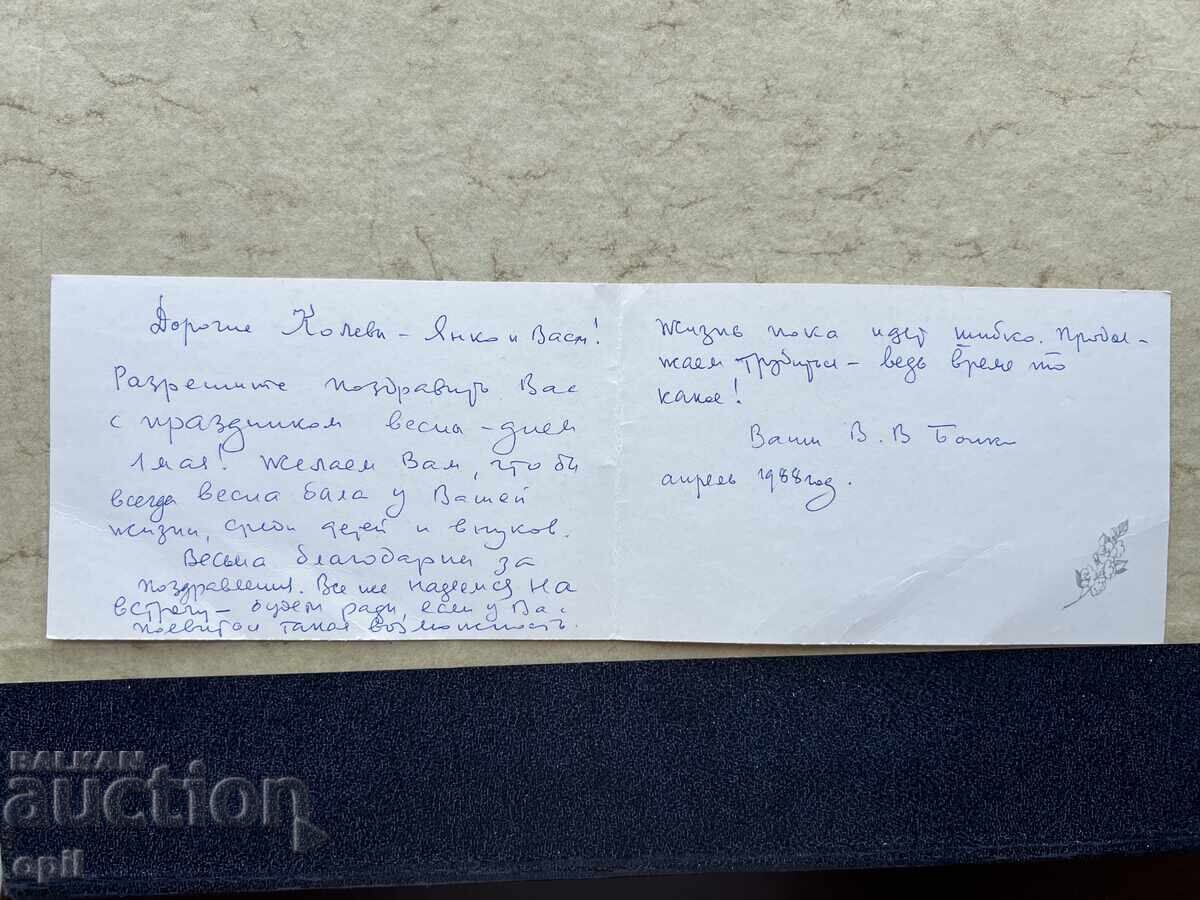 Дорогие Колеви - Янко и Вася!
Разрешите поздравить Вас
с праздником весна - днем
1 мая! Желаем Вам, что би
всегда весна бала у Вашей
жизни, среди детей и внуков.
Весьма благодарни за
поздравления. Все же надеемся на
встречу - будем ради, если у Вас
поевится такая возможность.
Жизнь пока идет шибко. Продол-
жаем трудиться - ведь време то
какое!
Ваши В. В
апрель 1988 год.
BALKAN
auction
opil